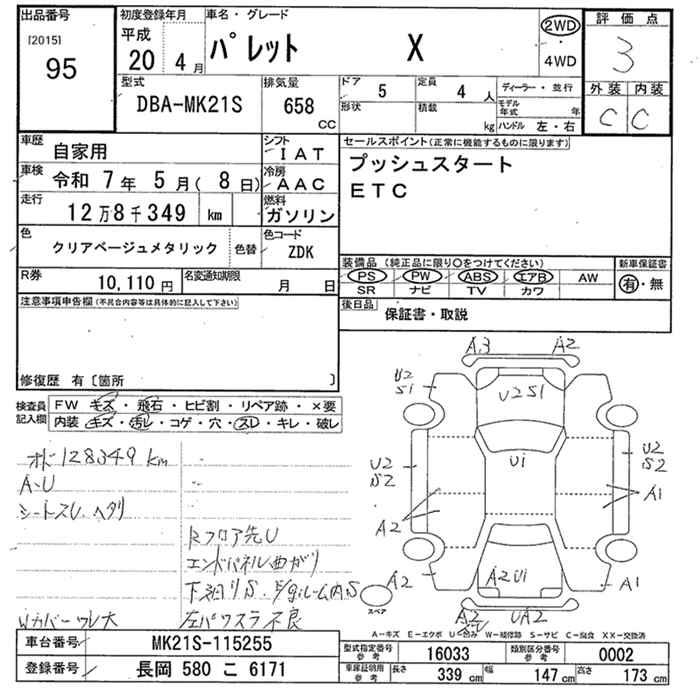 出品番号 初度登録年月 車名・グレード 評価点
[2015] 平成 2WD 3
95 20 4月 パレット X 4WD
型式 排気量 ドア 5 定員 4人 ディーラー・並行 外装 内装
DBA-MK21S 658 CC 形状 積載 kg モデル年式 年 ハンドル 左・右 C C
車歴 自家用 シフト IAT セールスポイント(正常に機能するものに限ります)
車検 令和 7年 5月(8日) 冷房 AAC プッシュスタート
走行 12万8千349 km 燃料 ガソリン ETC
色 クリアベージュメタリック 色替 色コード ZDK
装備品(純正品に限り○をつけてください) 新車保証書
R券 10,110円 名変通知期限 月 日 PS PW ABS エアB AW 有・無
SR ナビ TV カワ
注意事項申告欄(不具合内容等は具体的に記入して下さい) 後日品 保証書・取説
修復歴 有〔箇所 〕
検査員記入欄 FW キズ・飛石・ヒビ割・リペア跡・×要
内装 キズ・汚レ・コゲ・穴・スレ・キレ・破レ
A3 A2
U2 S1 U2S1
U1
U2 S2 U2 S2
A2 A1
A2 A2U1 A1
A2 UA2
スペア
128349 km
A・U
シートスレ ヘタリ
Rフロア先U
エンドパネル曲がり
左パワスラ不良
A-キズ E-エクボ U-凹み W-補修跡 S-サビ C-腐食 XX-交換済
車台番号 MK21S-115255 型式指定参考番号 16033 類別区分番号参考 0002
登録番号 長岡 580 こ 6171 車庫証明用参考 長さ 339 cm 幅 147 cm 高さ 173 cm